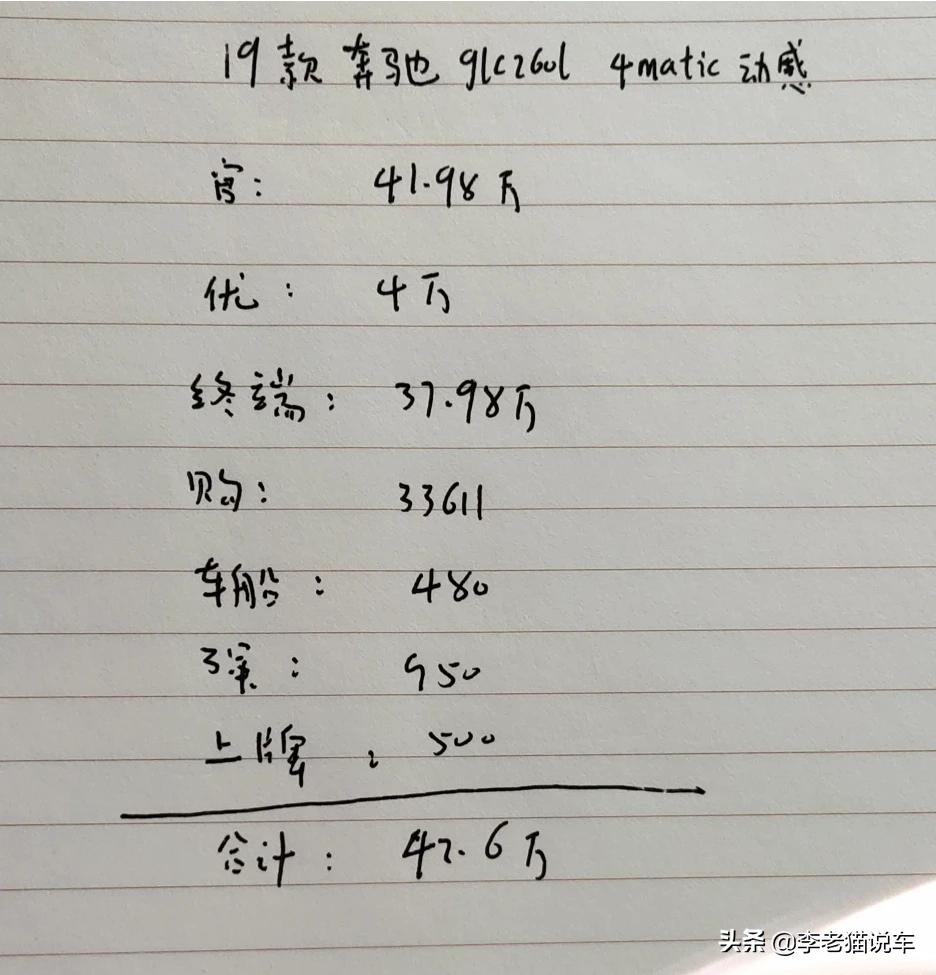 19款 奔驰 glc260l 4matic 动感
官: 41.98万
优: 4万
终端: 37.98万
购: 33611
车船: 480
3深: 950
上牌: 500
合计: 42.6万
头条 @李老猫说车